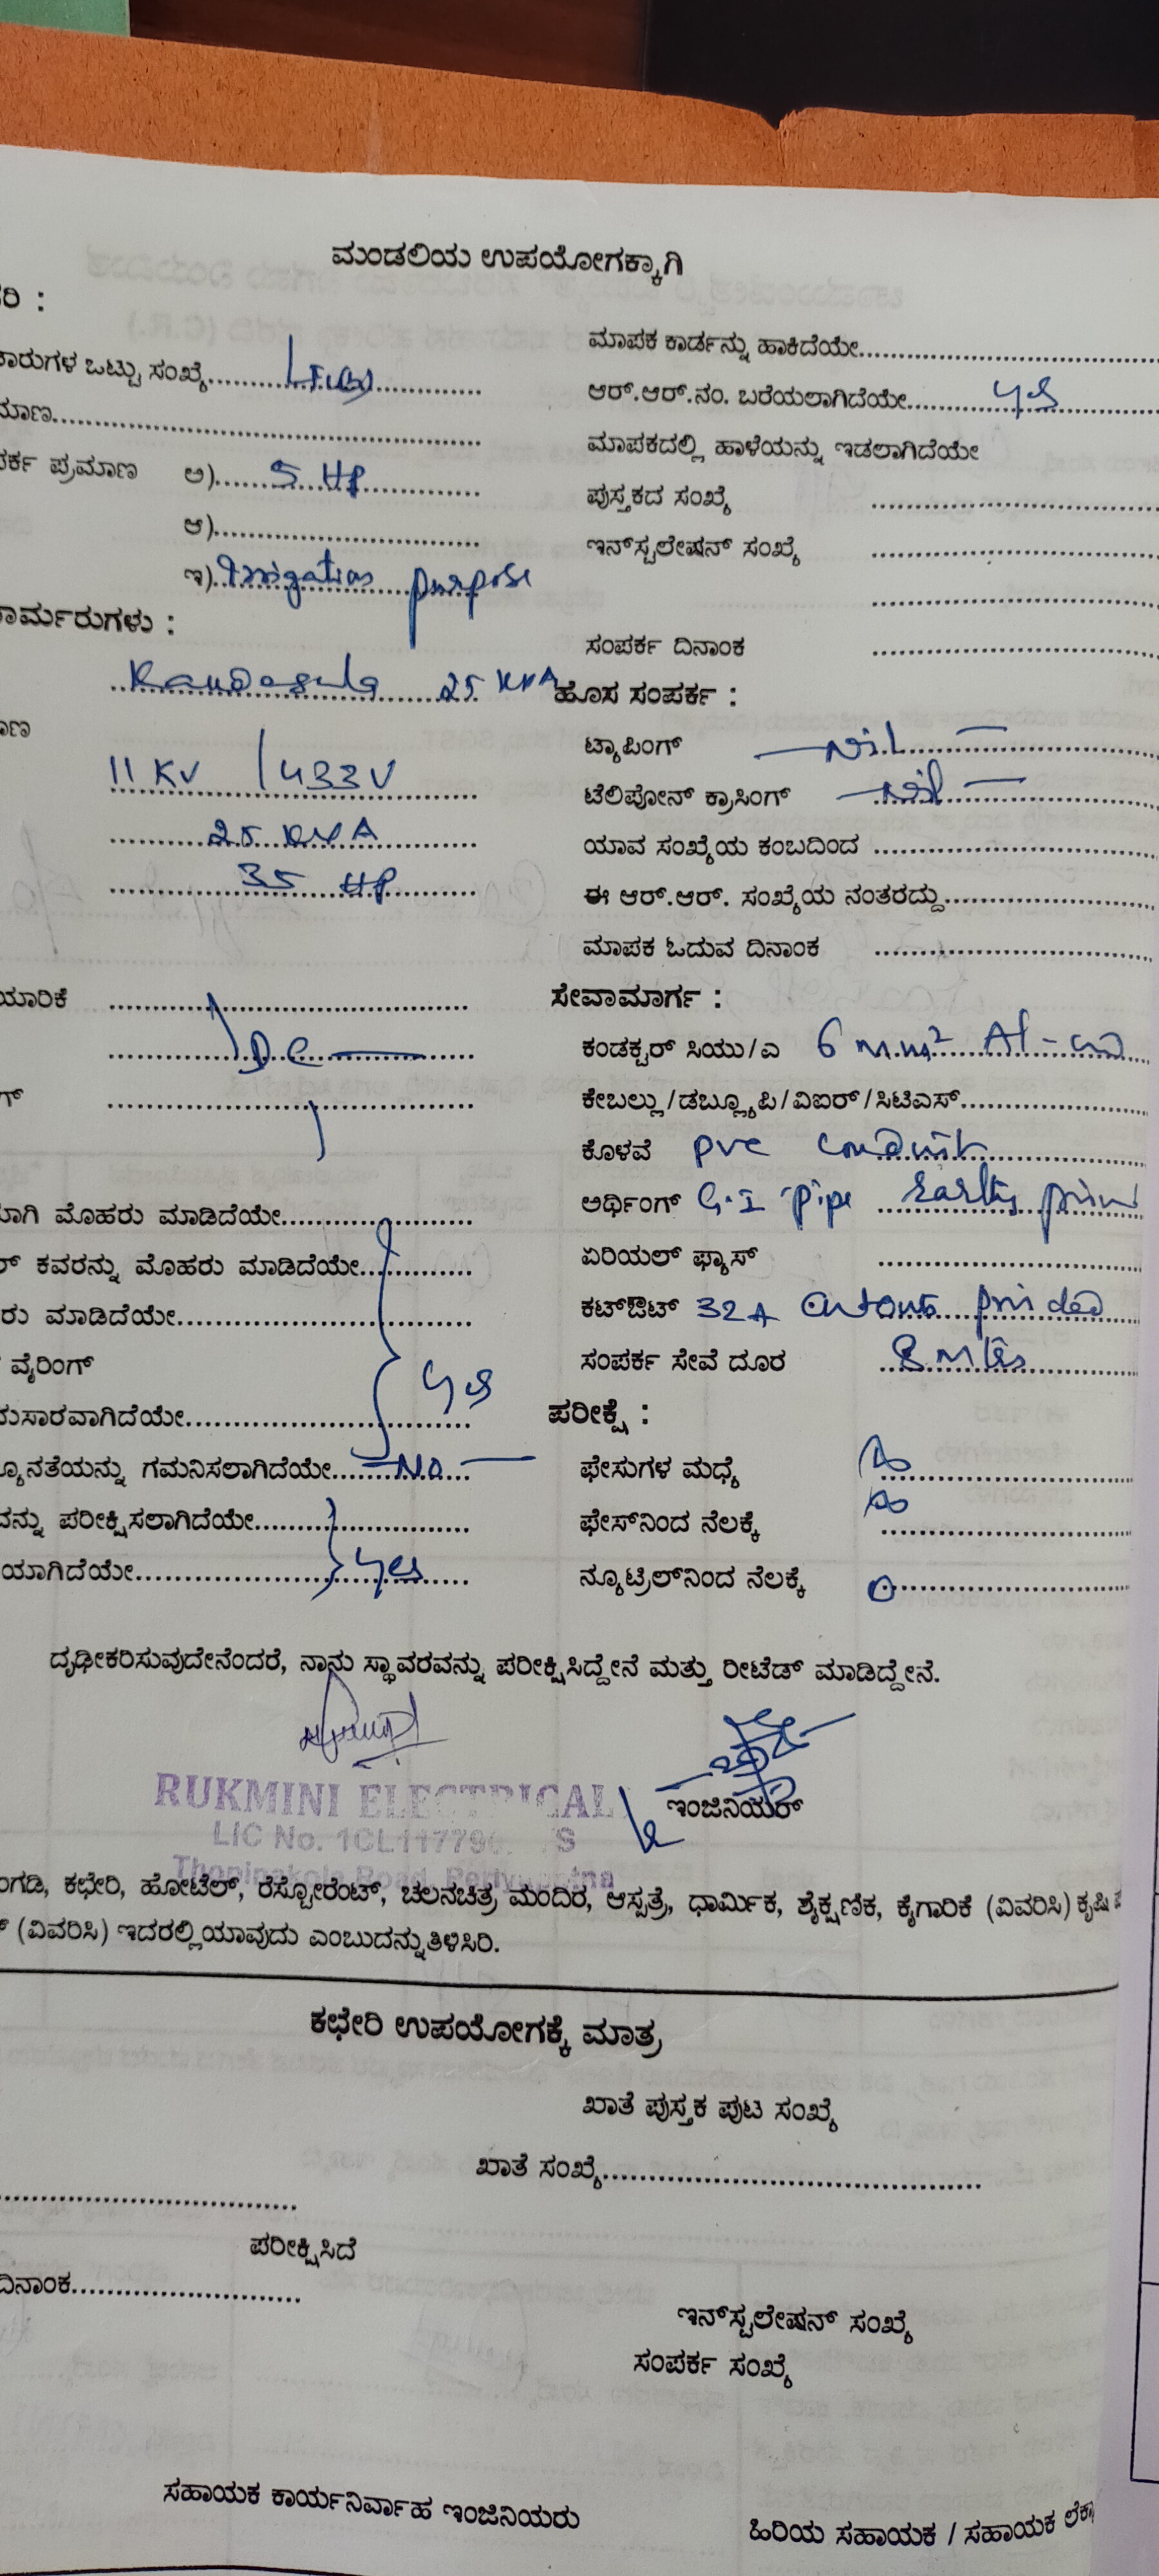 ಮಂಡಲಿಯ ಉಪಯೋಗಕ್ಕಾಗಿ
ರಿ :
ಕಾರುಗಳ ಒಟ್ಟು ಸಂಖ್ಯೆ
ಮಾಣ
ಪರ್ಕ ಪ್ರಮಾಣ ಅ) 5 HP
ಆ)
ಇ) Irrigation purpose
ಾರ್ಮರುಗಳು :
25 KVA
ಾಣ
11 KV / 433V
25 KVA
35 HP
ಯಾರಿಕೆ
ಗ್
ವಾಗಿ ಮೊಹರು ಮಾಡಿದೆಯೇ
ರ್ ಕವರನ್ನು ಮೊಹರು ಮಾಡಿದೆಯೇ
ರು ಮಾಡಿದೆಯೇ
ವೈರಿಂಗ್ yes
ನುಸಾರವಾಗಿದೆಯೇ
ನ್ಯೂನತೆಯನ್ನು ಗಮನಿಸಲಾಗಿದೆಯೇ No
ವನ್ನು ಪರೀಕ್ಷಿಸಲಾಗಿದೆಯೇ
ಯಾಗಿದೆಯೇ yes
ಮಾಪಕ ಕಾರ್ಡನ್ನು ಹಾಕಿದೆಯೇ
ಆರ್.ಆರ್.ನಂ. ಬರೆಯಲಾಗಿದೆಯೇ yes
ಮಾಪಕದಲ್ಲಿ ಹಾಳೆಯನ್ನು ಇಡಲಾಗಿದೆಯೇ
ಪುಸ್ತಕದ ಸಂಖ್ಯೆ
ಇನ್‌ಸ್ಟಲೇಷನ್ ಸಂಖ್ಯೆ
ಸಂಪರ್ಕ ದಿನಾಂಕ
ಹೊಸ ಸಂಪರ್ಕ :
ಟ್ಯಾಪಿಂಗ್ Nil
ಟೆಲಿಪೋನ್ ಕ್ರಾಸಿಂಗ್ Nil
ಯಾವ ಸಂಖ್ಯೆಯ ಕಂಬದಿಂದ
ಈ ಆರ್.ಆರ್. ಸಂಖ್ಯೆಯ ನಂತರದ್ದು
ಮಾಪಕ ಓದುವ ದಿನಾಂಕ
ಸೇವಾಮಾರ್ಗ :
ಕಂಡಕ್ಟರ್ ಸಿಯು/ಎ 6 mm² Al
ಕೇಬಲ್ಲು/ಡಬ್ಲ್ಯೂಪಿ/ವಿಐರ್/ಸಿಟಿಎಸ್
ಕೊಳವೆ pvc conduit
ಅರ್ಥಿಂಗ್ G.I pipe Earthing
ಏರಿಯಲ್ ಫ್ಯಾಸ್
ಕಟ್‌ಔಟ್ 32A cutouts provided
ಸಂಪರ್ಕ ಸೇವೆ ದೂರ 8 mtrs
ಪರೀಕ್ಷೆ :
ಫೇಸುಗಳ ಮಧ್ಯೆ
ಫೇಸ್‌ನಿಂದ ನೆಲಕ್ಕೆ
ನ್ಯೂಟ್ರಿಲ್‌ನಿಂದ ನೆಲಕ್ಕೆ 0
ದೃಢೀಕರಿಸುವುದೇನೆಂದರೆ, ನಾನು ಸ್ಥಾವರವನ್ನು ಪರೀಕ್ಷಿಸಿದ್ದೇನೆ ಮತ್ತು ರೀಟೆಡ್ ಮಾಡಿದ್ದೇನೆ.
RUKMINI ELECTRICAL
LIC No.
Road,
ಇಂಜಿನಿಯರ್
ಂಗಡಿ, ಕಛೇರಿ, ಹೋಟೆಲ್, ರೆಸ್ಟೋರೆಂಟ್, ಚಲನಚಿತ್ರ ಮಂದಿರ, ಆಸ್ಪತ್ರೆ, ಧಾರ್ಮಿಕ, ಶೈಕ್ಷಣಿಕ, ಕೈಗಾರಿಕೆ (ವಿವರಿಸಿ) ಕೃಷಿ
(ವಿವರಿಸಿ) ಇದರಲ್ಲಿಯಾವುದು ಎಂಬುದನ್ನುತಿಳಿಸಿರಿ.
ಕಛೇರಿ ಉಪಯೋಗಕ್ಕೆ ಮಾತ್ರ
ಖಾತೆ ಪುಸ್ತಕ ಪುಟ ಸಂಖ್ಯೆ
ಖಾತೆ ಸಂಖ್ಯೆ
ಪರೀಕ್ಷಿಸಿದೆ
ದಿನಾಂಕ
ಇನ್‌ಸ್ಟಲೇಷನ್ ಸಂಖ್ಯೆ
ಸಂಪರ್ಕ ಸಂಖ್ಯೆ
ಸಹಾಯಕ ಕಾರ್ಯನಿರ್ವಾಹ ಇಂಜಿನಿಯರು
ಹಿರಿಯ ಸಹಾಯಕ / ಸಹಾಯಕ